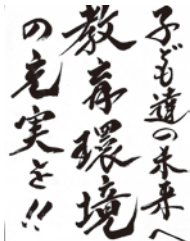 子ども達の未来へ
教育環境
の充実を!!